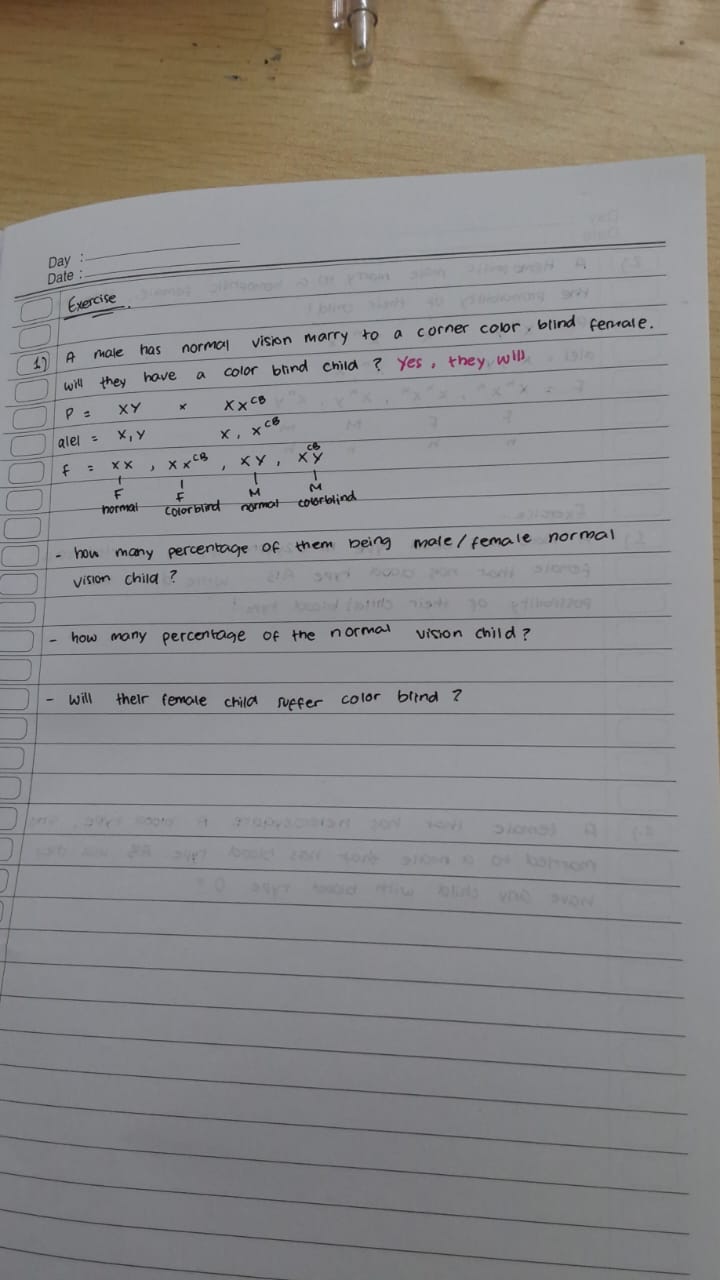 Day :
Date :
Exercise.
1) A male has normal vision marry to a corner color, blind female.
will they have a color blind child ? Yes, they will
P = XY × XX^CB
alel = X, Y X, X^CB
f = XX , XX^CB , XY , X^CB Y
F F M M
normal colorblind normal colorblind
- how many percentage of them being male/female normal
vision child ?
- how many percentage of the normal vision child ?
- will their female child suffer color blind ?